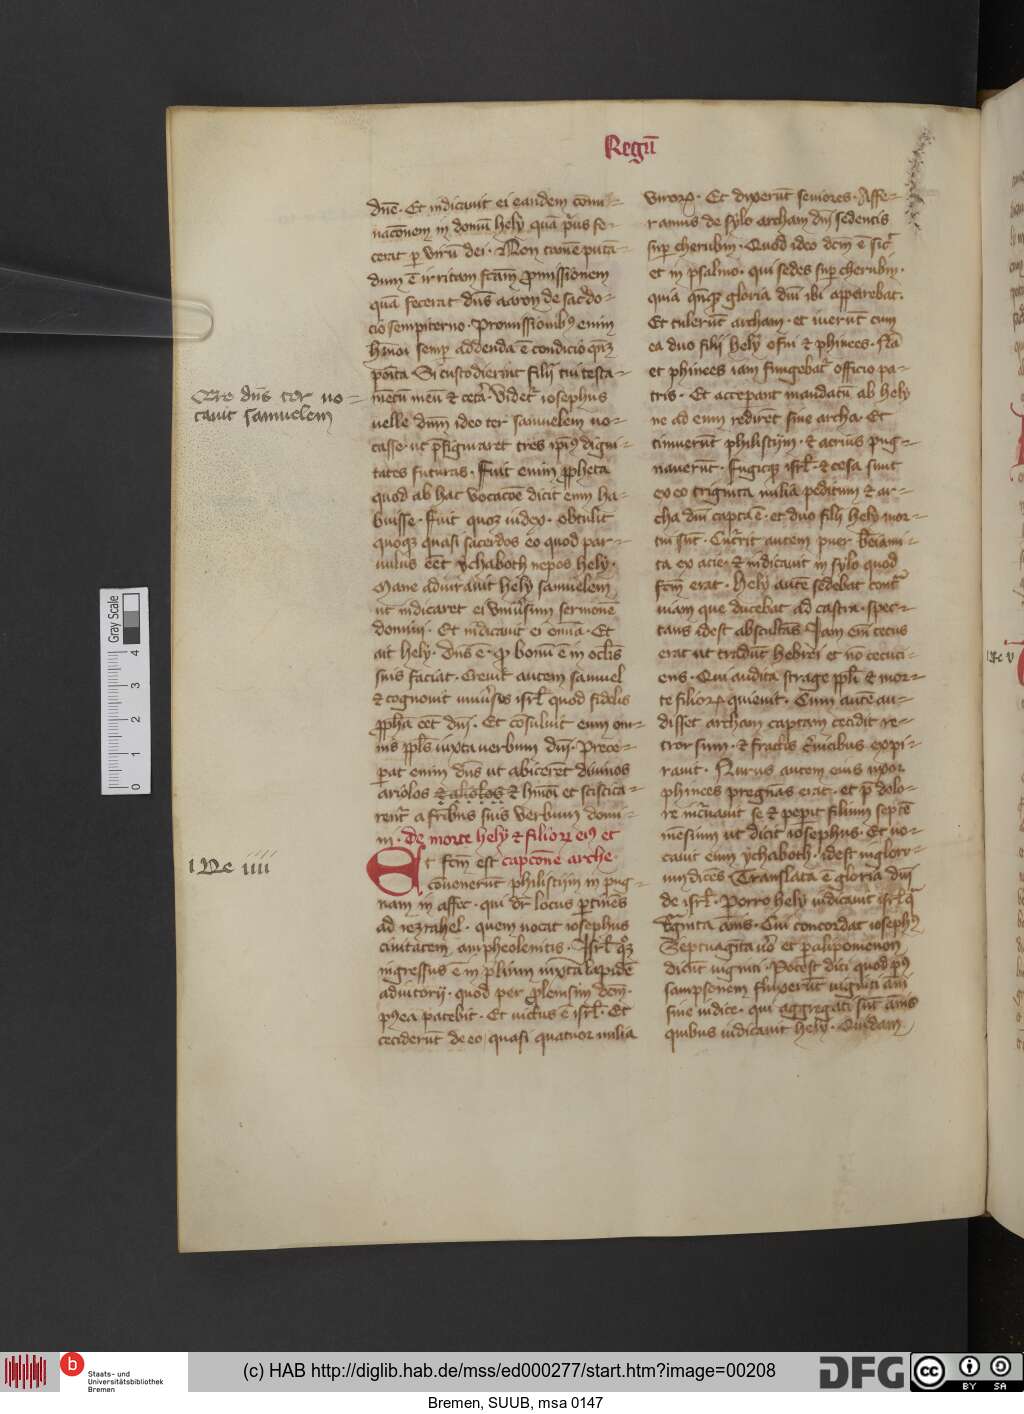 Regū
dn̄e · Et indicauit ei eandem com̄i=
nac̄onem in domū hely quā p̄us fe=
cerat ꝑ virū dei · Non tamē putā=
dum ē irritam fc̄am ꝓmissionem
quā fecerat dn̄s aaron de sac̄do=
cio sempiterno · Promissionibꝰ enim
hm̄oi semꝑ addenda ē condicio qn̄ꝫ
po̅ita Si custodierint filij tui testa=
mētū meū ⁊ cetᷓ · Videtᷣ iosephus
uelle dn̄m ideo ter samuelem uo=
casse · ut p̄figuraret tres ip̄iꝰ digni=
tates futuras · Fuit enim ꝓpheta
quod ab hac vocac̄oē dicit eum ha=
buisse · Fuit quoꝫ iudex · obtulit
quoqꝫ quasi sacerdos eo quod par=
uulus eēt ychaboth nepos hely ·
Mane adiurauit hely samuelem
ut indicaret ei vniūsum sermonē
domini · Et indicauit ei om̄ia · Et
ait hely · dn̄s ē · qꝫ bonū ē in oclis̄
suis faciat · Creuit autem samuel
⁊ cognouit vniūsus isrl̄ quod fidelis
ꝓph̄a eēt dn̄i · Et cōsuluit eum om=
nis ppl̄s iuxta uerbum dn̄i · Prece=
perat enim dn̄s ut abicerēt diuinos
ariolos ⁊ aliolos ⁊ hm̄oi et sciscita=
rentᷣ a fr̄ibus suis verbum domi=
ni · De morte hely ⁊ filiorꝫ eiꝰ et
Et fc̄m est capc̄one arche ·
cōuenerūt philistijm in pug=
nam in affec · qui dr̄ locus ꝑtinēs
ad iezrahel · quem uocat iosephus
ciuitatem ampheolenitis · Isrl̄ qͦꝫ
ingressus ē in p̄lium iuxta lapidē
adiutorij · quod per ꝓlemsim dc̄m ·
pꝰea patebit · Et uictus ē isrl̄ · Et
ceciderūt de eo quasi quatuor milia
virorꝫ · Et dixerūt seniores · Affe=
ramus de sylo archam dn̄i sedentis
suꝑ cherubin · Quod ideo dc̄m ē sicᷣ
et in psalmo · qui sedes suꝑ cherubin ·
quia qn̄qꝫ gloria dn̄i ibi apparebat ·
Et tulerūt archam · et iuerūt cum
ea duo filij hely ofni ⁊ phinees · Nā
et phinees iam fungebatᷣ officio pa=
tris · Et acceperant mandatū ab hely
ne ad eum redirēt sine archa · Et
timuerūt philistijm · ⁊ acrius pug=
nauerūt · Fugitqꝫ isrl̄ · ⁊ cesa sunt
ex eo triginta milia peditum ⁊ ar=
cha dn̄i capta ē · et duo filij hely mor=
tui sūt · Cucᷣrit autem puer bēiami=
ta ex acie · ⁊ indicauit in sylo quod
fc̄m erat · Hely autē sedebat contᷓ
uiam que ducebat ad castra · spec=
tans idest abscultās Iam em̄ cecus
erat ut tradūt hebrei et nō cecuci=
ens · Qui audita strage ppl̄i ⁊ mor=
te filiorꝫ quieuit · Cum autē au=
disset archam captam cecidit re=
trorsum · ⁊ fractis cᷣuicibus expi=
rauit · Nurus autem eius uxor
phinees pregnās erat · et p̄ dolo=
re incᷣuauit se ⁊ peperit filium septē
mēsium ut dicit iosephus · Et uo=
cauit eum ychaboth · idest inglori=
um dicēs Translata ē gloria dn̄i
de isrl̄ · Porro hely iudicauit isrl̄ qᷓ
draginta ānis · Cui concordat iosephꝰ
Septuagīta uͦo et palipomenon
dicūt uiginti · Potest dici quod pꝰ
sampsonem fluxerūt uiginti an̄i
sine iudice · qui aggregati sūt ānis
quibus iudicauit hely · Quidam
Quare dn̄s ter uo=
cauit samuelem
1 Re iiii
1 Re v
Gray Scale
4
3
2
1
0
b
Staats- und
Universitätsbibliothek
Bremen
(c) HAB http://diglib.hab.de/mss/ed000277/start.htm?image=00208
DFG
cc
BY SA
Bremen, SUUB, msa 0147